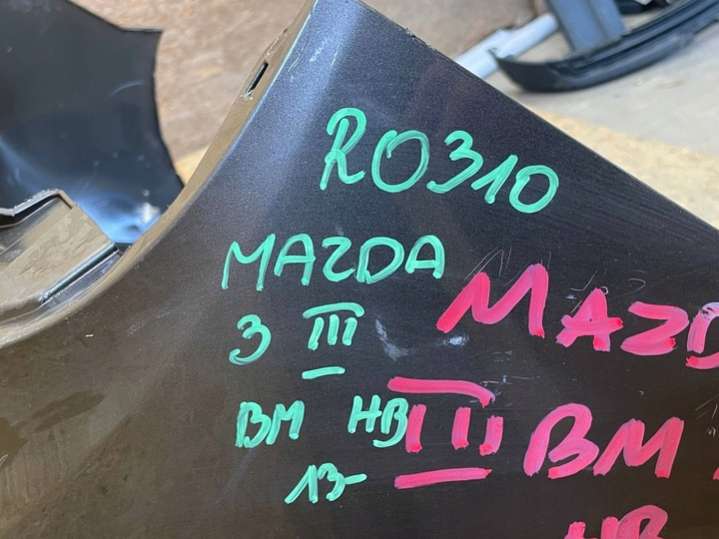 RO310
MAZDA
3 III
BM HB
13-
MAZD
III BM
HB